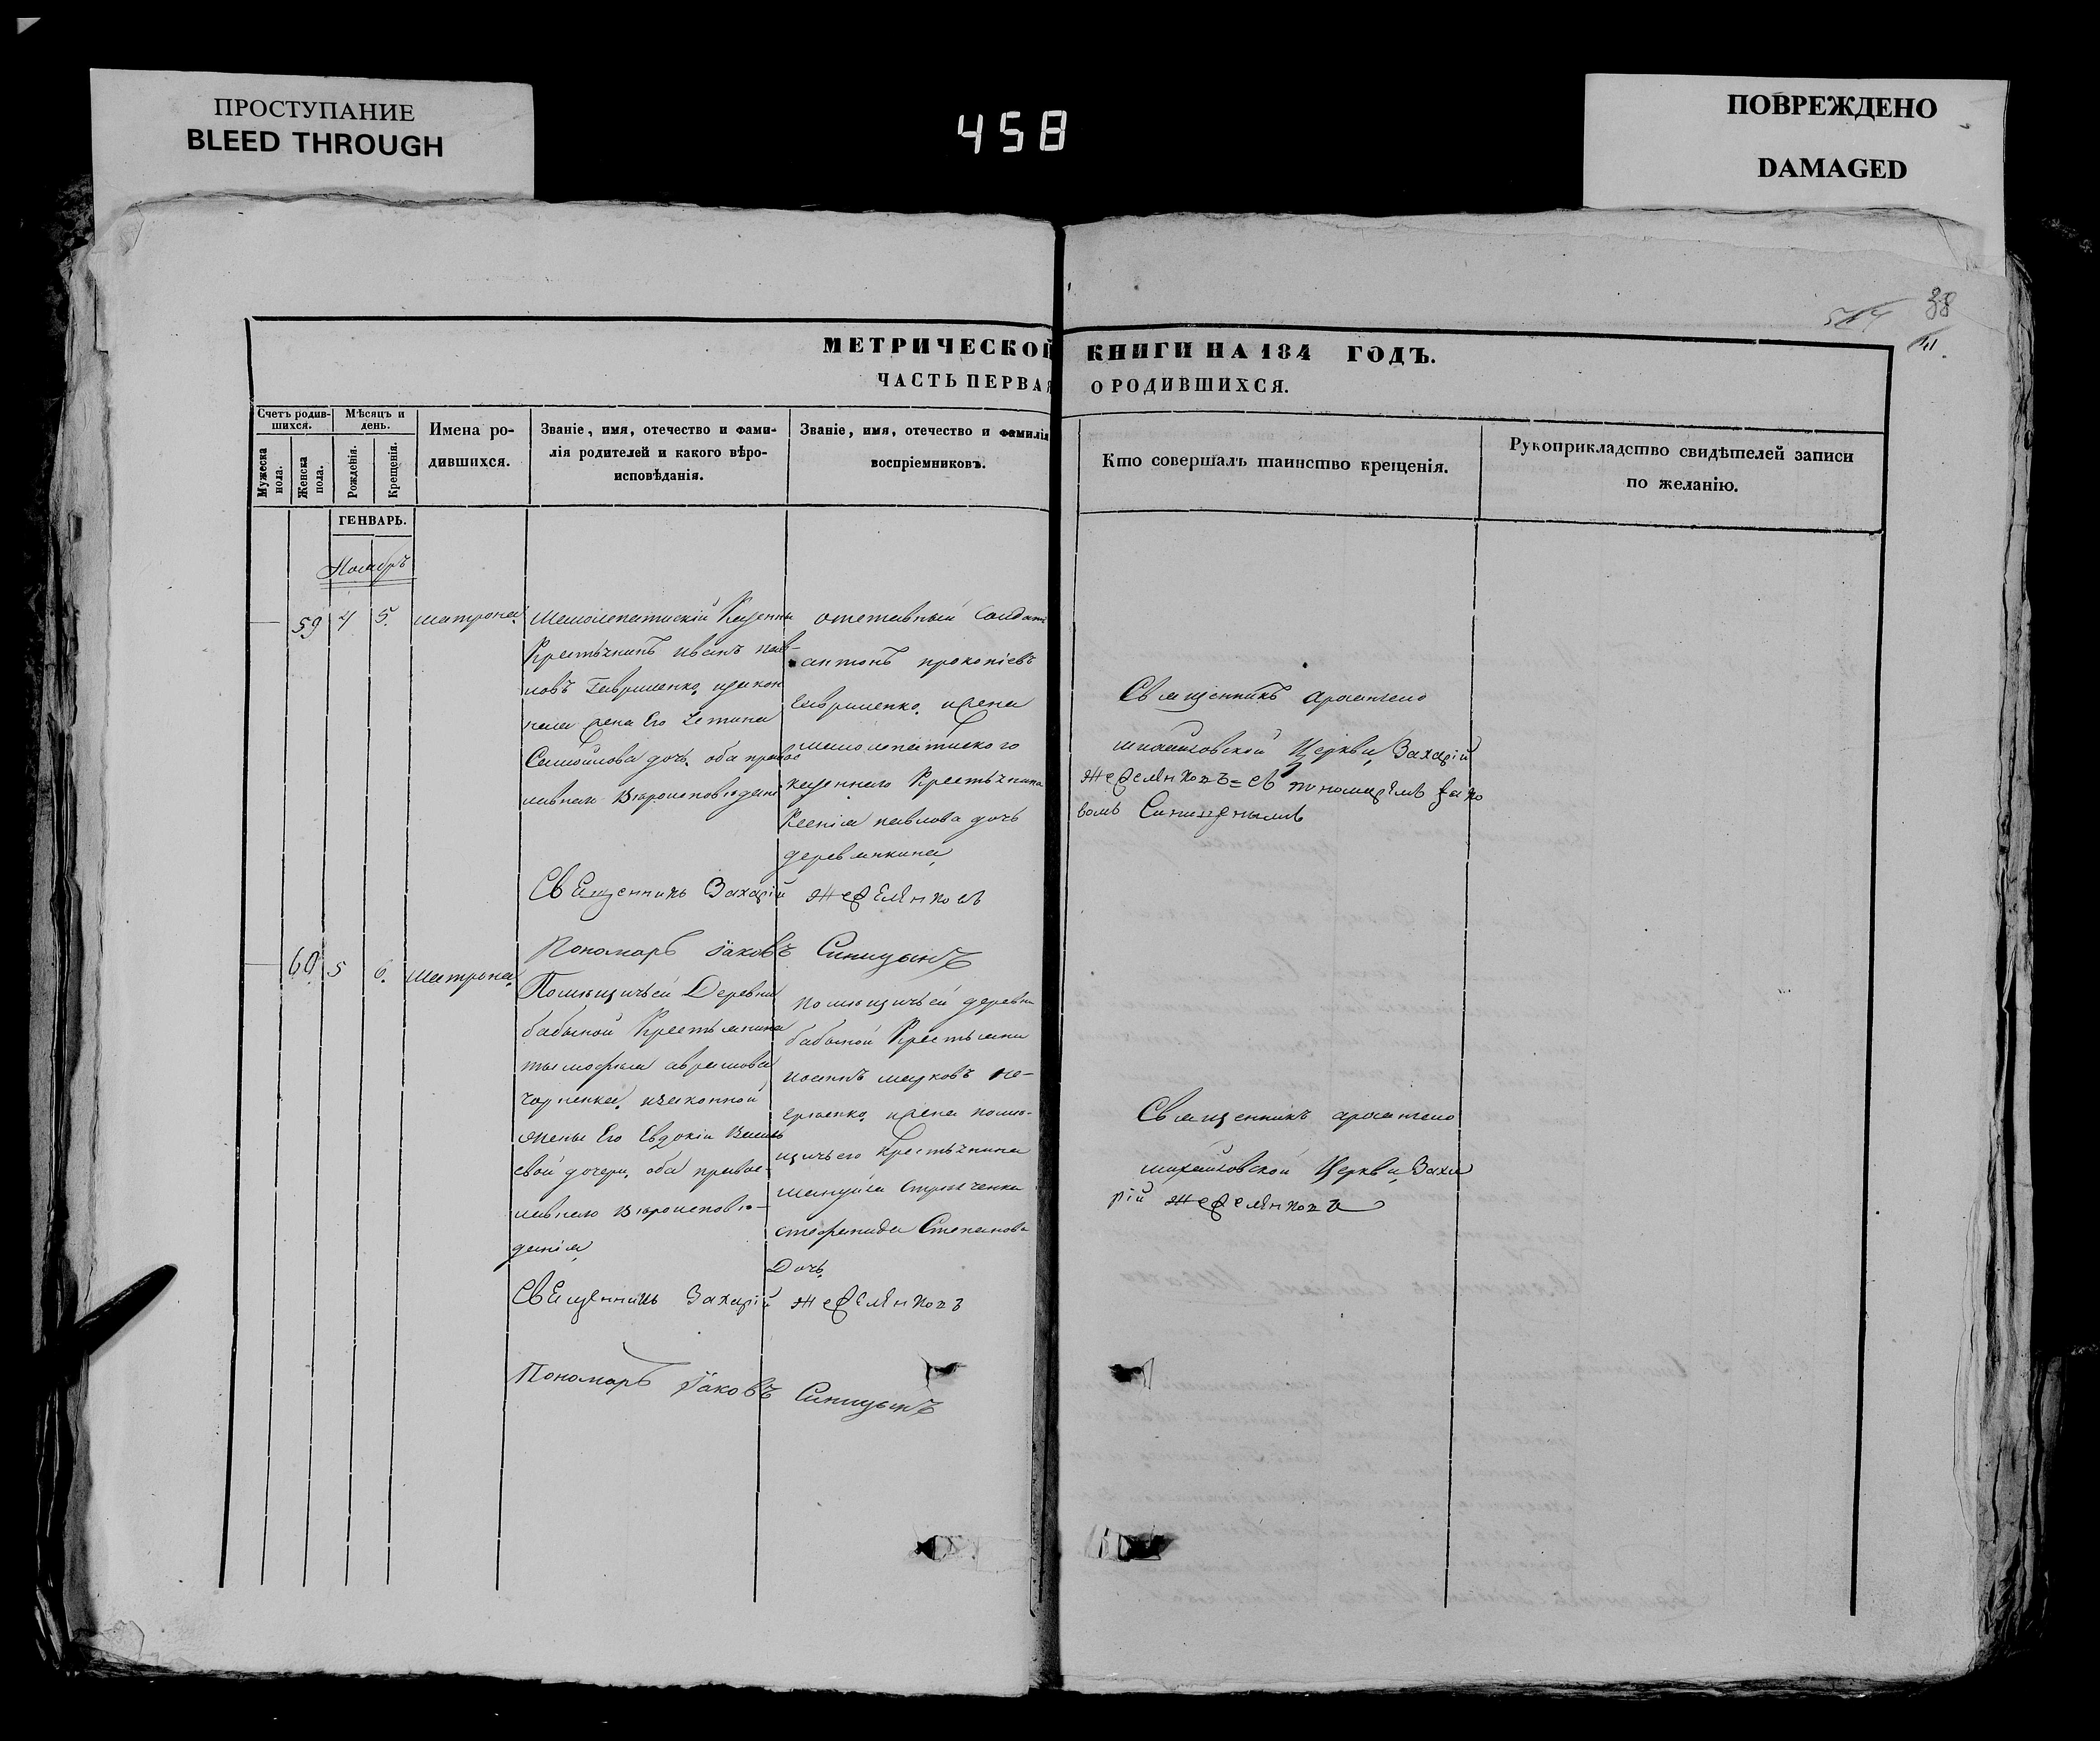 ПРОСТУПАНИЕ
BLEED THROUGH
458
ПОВРЕЖДЕНО
DAMAGED
38
МЕТРИЧЕСКОЙ КНИГИ НА 184 ГОДЪ.
ЧАСТЬ ПЕРВАЯ О РОДИВШИХСЯ.
Счетъ родив-
шихся.
Мужеска
пола.
Женска
пола.
Мѣсяцъ и
день.
Рожденія.
Крещенія.
Имена ро-
дившихся.
Званіе, имя, отечество и фами-
лія родителей и какого вѣро-
исповѣданія.
Званіе, имя, отечество и фамилія
воспріемниковъ.
Кто совершалъ таинство крещенія.
Рукоприкладство свидѣтелей записи
по желанію.
ГЕНВАРЬ.
Ноябрь
59 4 5. матрона
Крестьянинъ иванъ пав-
ловъ Гавриленко, изакон
ная жена Его
Самойлова дочь, оба правос
лавнаго Вѣроисповѣдані
отставный Солдатъ
антонъ прокопіевъ
Гавриленко, ижена
казеннаго Крестьянина
Ксенія павлова дочь
деревянкина
Священникъ архангело
михайловской Церкви Захарій
съ пономаремъ Яко
вомъ Синицынымъ
Священникъ Захарій
Пономарь Іаковъ Синицынъ
60 5 6. Матрона
Помѣщичьей Деревни
бабиной Крестьянина
тимофея аврамова
изаконной
жены Его Евдокіи Василь
евой дочери, оба правос-
лавнаго Вѣроисповѣ-
данія
помѣщичьей деревни
бабиной Крестьяни
марковъ не-
ижена помѣ-
щичьего Крестьянина
мануйла
стефанида Степанова
Дочь
Священникъ архангело
михайловской Церкви Заха
рій
Священникъ Захарій
Пономарь Іаковъ Синицынъ